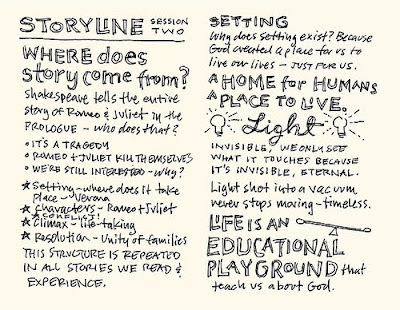 STORYLINE SESSION TWO
WHERE does
story come from?
Shakespeare tells the entire
story of Romeo & Juliet in the
PROLOGUE – who does that?
• IT'S A TRAGEDY
• ROMEO + JULIET KILL THEMSELVES
• WE'RE STILL INTERESTED – Why?
★ Setting – where does it take
place – Verona
★ Characters – Romeo + Juliet
★ CONFLICT!
★ Climax – life-taking
★ Resolution – Unity of families
THIS STRUCTURE IS REPEATED
IN ALL STORIES WE READ &
EXPERIENCE.
SETTING
Why does setting exist? Because
God created a place for us to
live our lives – JUST FOR US.
A HOME FOR HUMANS
A PLACE TO LIVE.
Light
INVISIBLE, WE ONLY SEE
WHAT IT TOUCHES BECAUSE
IT'S INVISIBLE, ETERNAL.
Light shot into a vacuum
never stops moving – timeless.
LIFE IS AN
EDUCATIONAL
PLAYGROUND that
teach us about God.